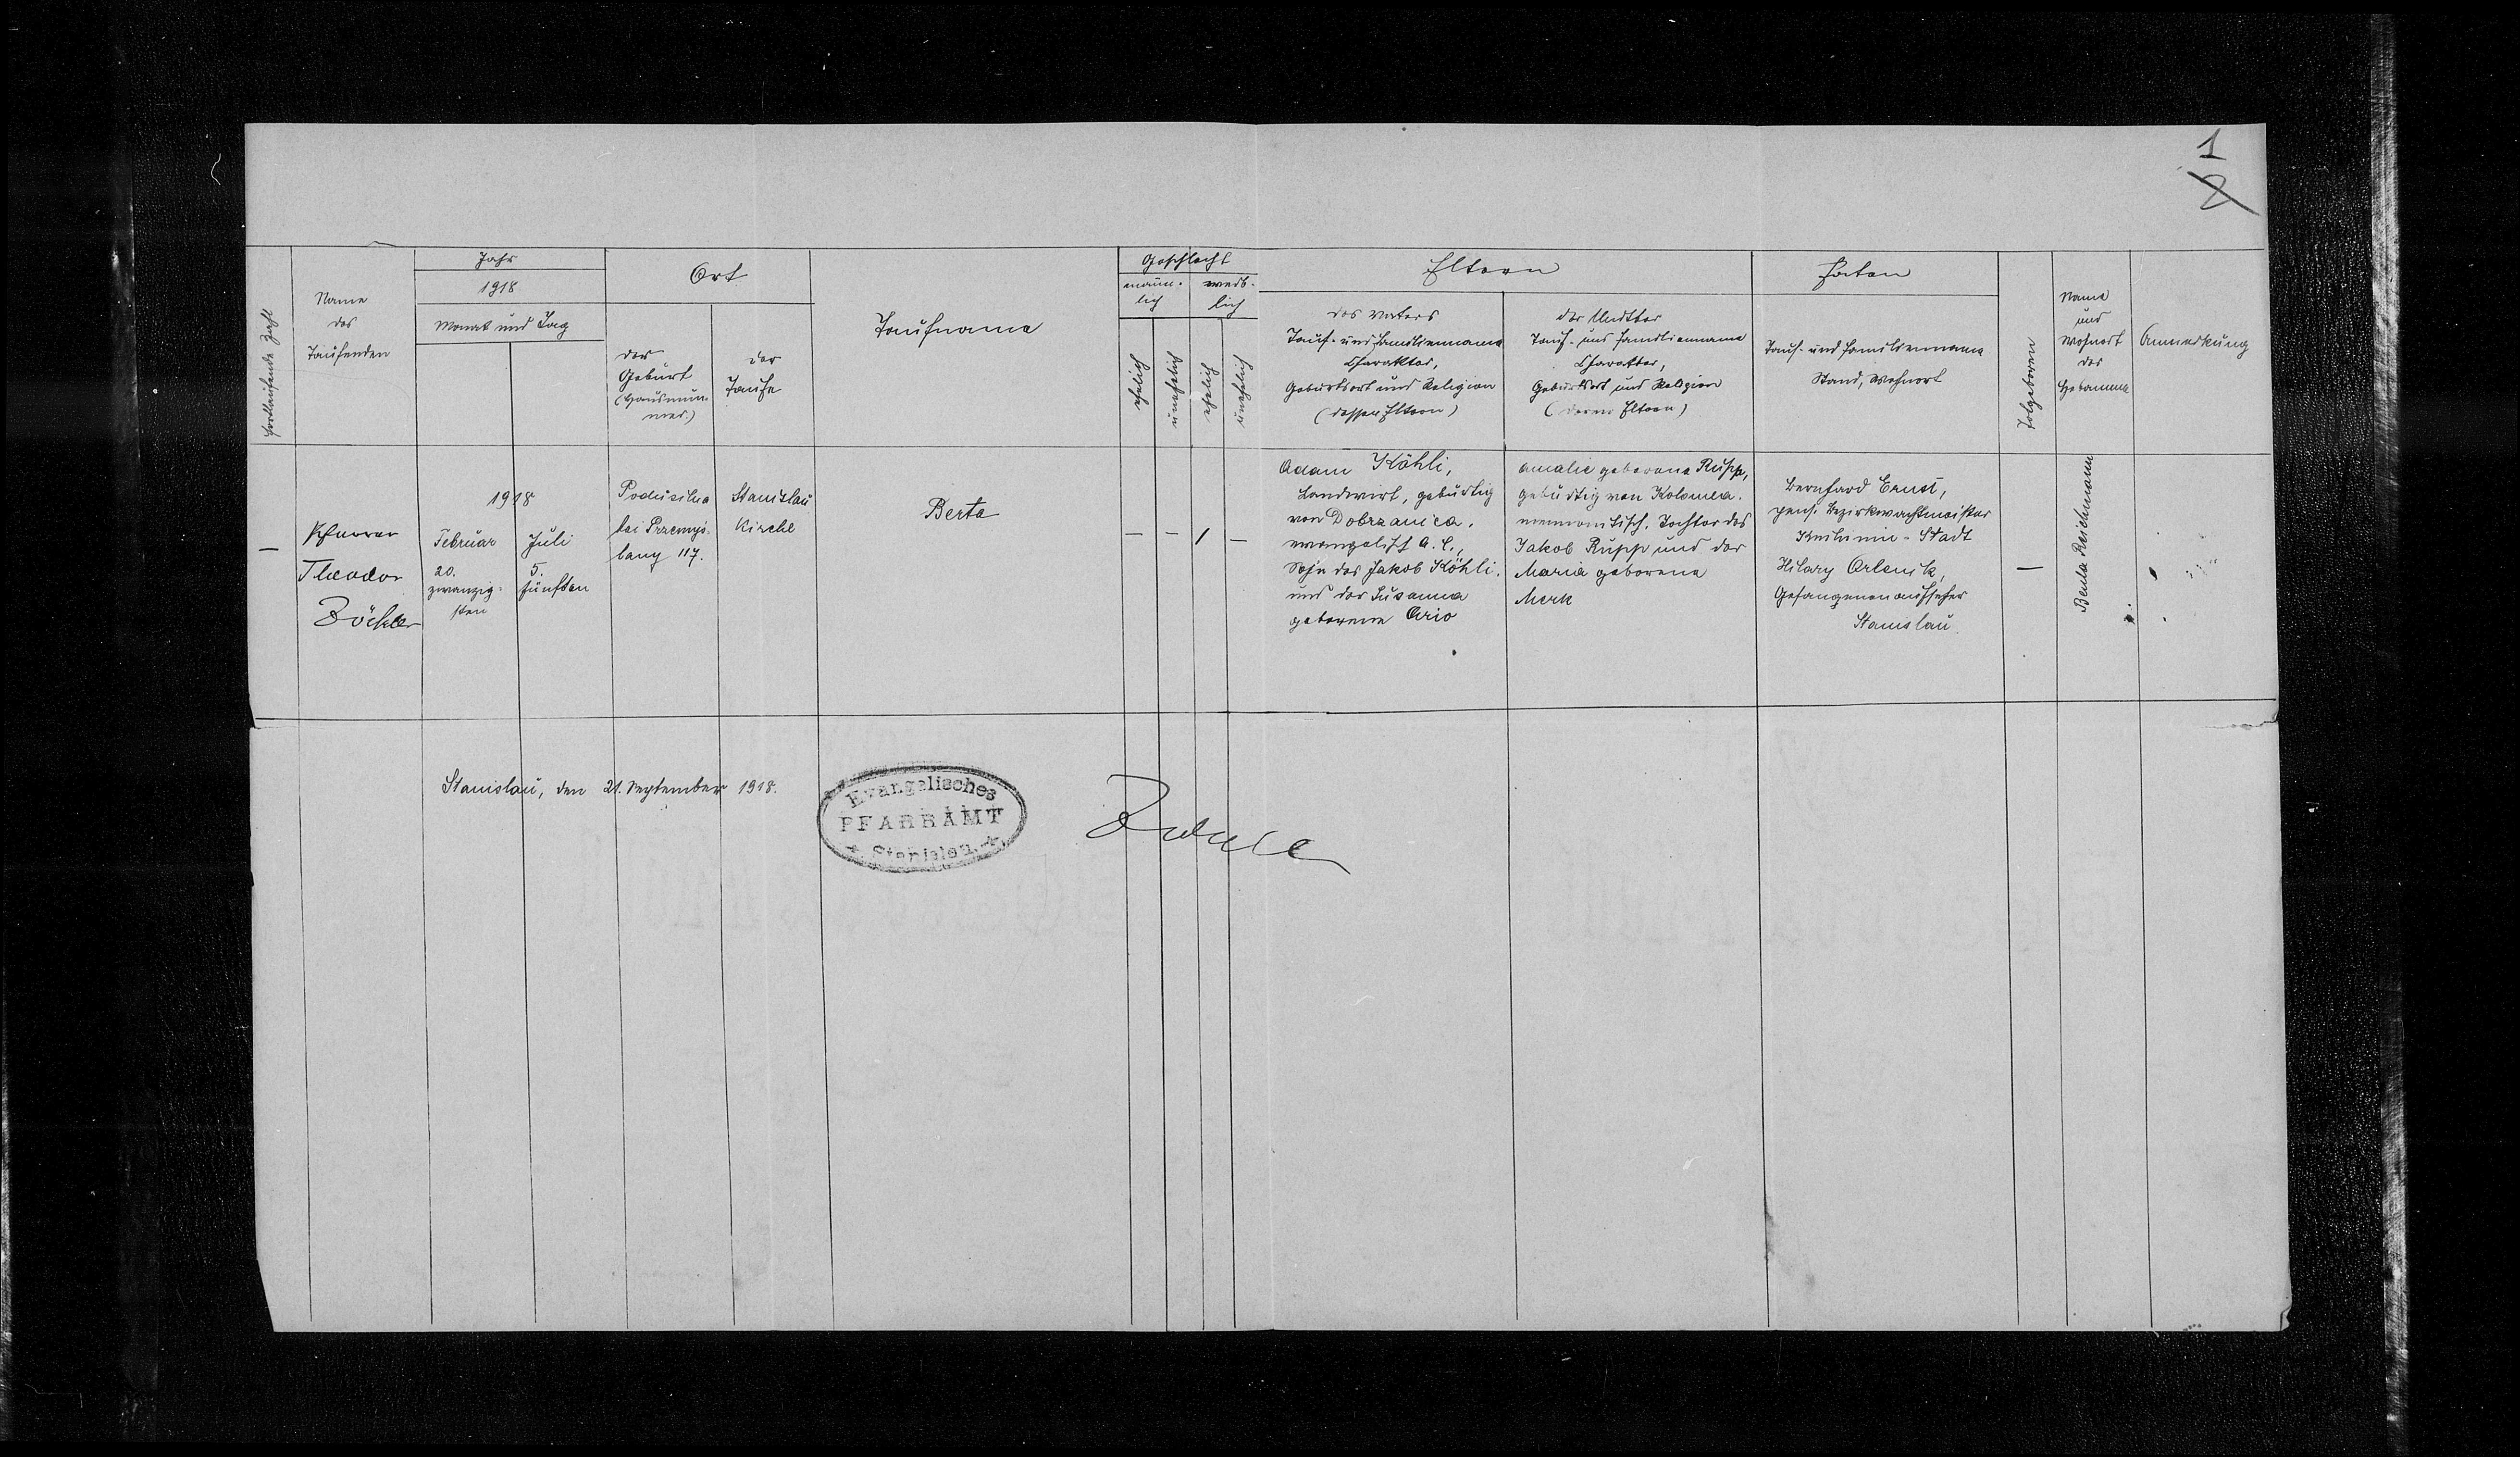 1
2
Fortlaufende Zahl
Name
des
Taufenden
Jahr
1918
Monat und Tag
Ort
der
Geburt
(Hausnum-
mer)
der
Taufe
Taufname
Geschlecht
männ-
lich
weib-
lich
ehelich
unehelich
ehelich
unehelich
Eltern
des Vaters
Tauf- und Familienname
Charakter,
Geburtsort und Religion
(dessen Eltern)
der Mutter
Tauf- und Familienname
Charakter,
Geburtsort und Religion
(deren Eltern)
Paten
Tauf- und Familienname
Stand, Wohnort
Totgeboren
Name
und
Wohnort
der
Hebamme
Anmerkung
—
Pfarrer
Theodor
Zöckler
1918
Februar
20.
zwanzig-
sten
Juli
5.
fünften
Podusilna
bei Przemyś-
lany 117.
Stanislau
Kirche
Berta
— — 1 —
Adam Köhli,
Landwirt, gebürtig
von Dobrzanica,
evangelisch A. C.,
Sohn des Jakob Köhli
und der Susanna
geborene Ario
Amalie geborene Rupp,
gebürtig von Kolomea.
mennonitisch. Tochter des
Jakob Rupp und der
Maria geborene
Merk
Bernhard Ernst,
pens. Bezirkswachtmeister
Knihinin-Stadt
Hilary Orlenik,
Gefangenenaufseher
Stanislau
—
Berta Reichmann
Stanislau, den 21. September 1918.
Evangelisches
PFARRAMT
Stanislau
Zöckler